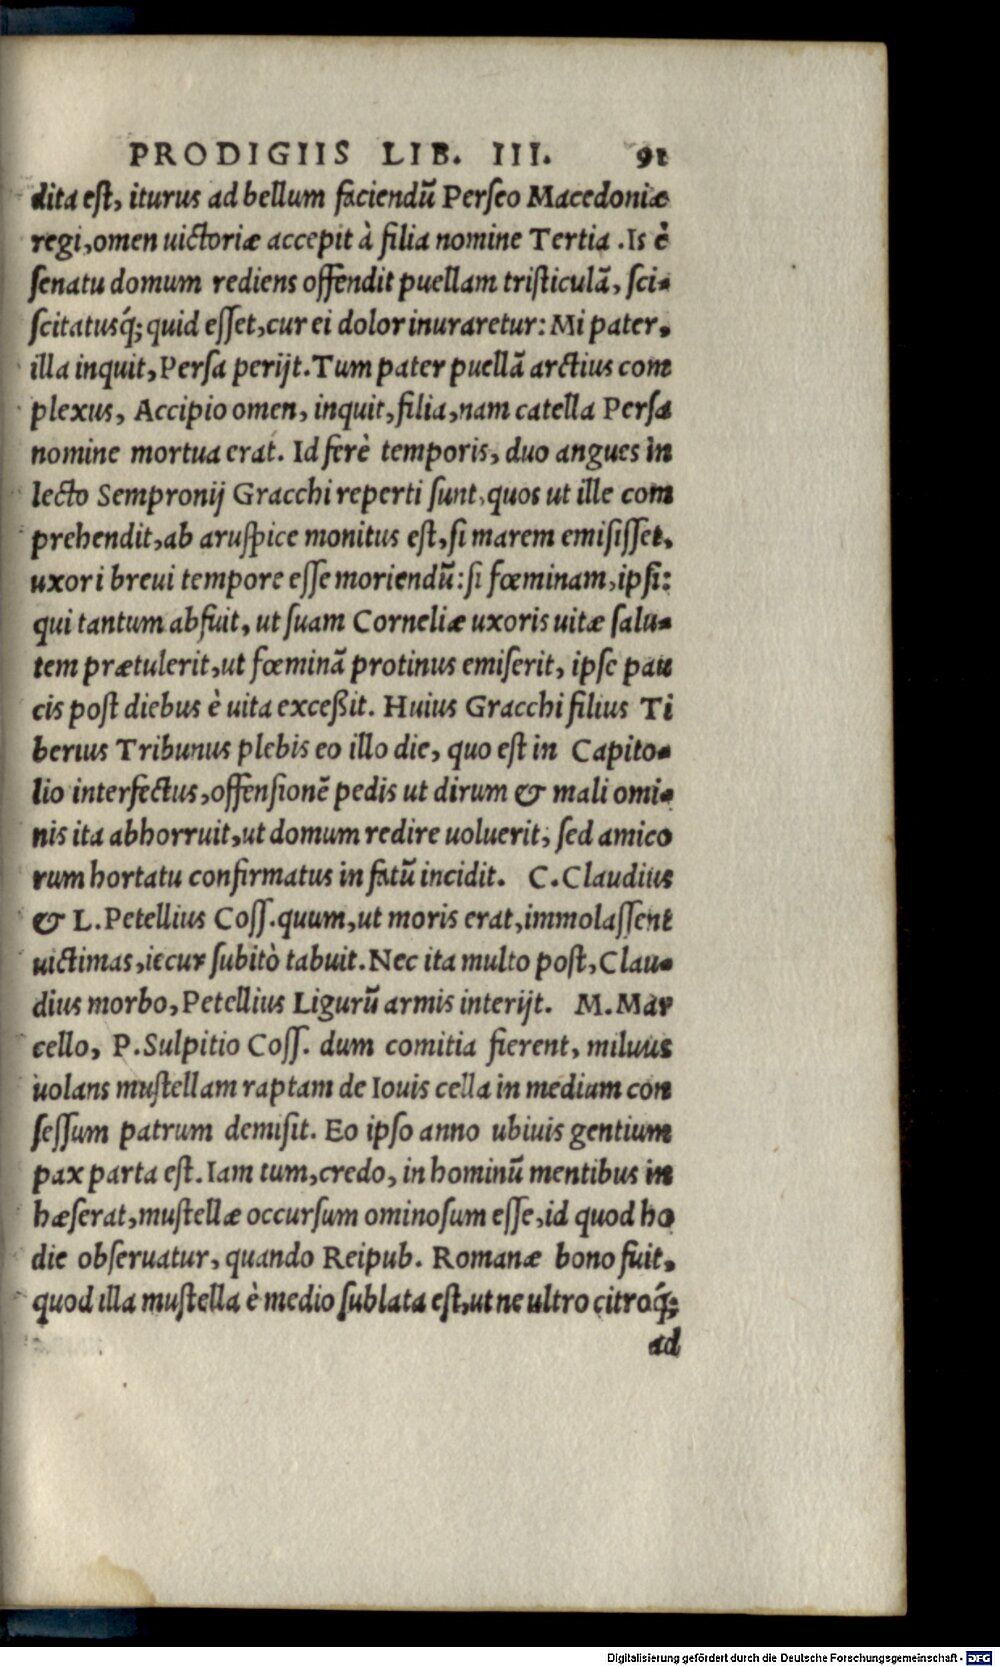 PRODIGIIS LIB. III. 91
dita eſt, iturus ad bellum faciendũ Perſeo Macedoniæ
regi, omen uictoriæ accepit à filia nomine Tertia. Is è
ſenatu domum rediens offendit puellam triſticulã, ſci-
ſcitatusq́; quid eſſet, cur ei dolor inuraretur: Mi pater,
illa inquit, Perſa perijt. Tum pater puellã arctius com
plexus, Accipio omen, inquit, filia, nam catella Perſa
nomine mortua erat. Id ferè temporis, duo angues in
lecto Sempronij Gracchi reperti ſunt, quos ut ille com
prehendit, ab aruſpice monitus eſt, ſi marem emiſiſſet,
uxori breui tempore eſſe moriendũ: ſi fœminam, ipſi:
qui tantum abfuit, ut ſuam Corneliæ uxoris uitæ ſalu-
tem prætulerit, ut fœminã protinus emiſerit, ipſe pau
cis poſt diebus è uita exceßit. Huius Gracchi filius Ti
berius Tribunus plebis eo illo die, quo eſt in Capito-
lio interfectus, offenſionẽ pedis ut dirum & mali omi-
nis ita abhorruit, ut domum redire uoluerit, ſed amico
rum hortatu confirmatus in fatũ incidit. C. Claudius
& L. Petellius Coſſ. quum, ut moris erat, immolaſſent
uictimas, iecur ſubitò tabuit. Nec ita multo poſt, Clau-
dius morbo, Petellius Ligurũ armis interijt. M. Mar
cello, P. Sulpitio Coſſ. dum comitia fierent, miluus
uolans muſtellam raptam de Iouis cella in medium con
ſeſſum patrum demiſit. Eo ipſo anno ubiuis gentium
pax parta eſt. Iam tum, credo, in hominũ mentibus in
hæſerat, muſtellæ occurſum ominoſum eſſe, id quod ho
die obſeruatur, quando Reipub. Romanæ bono fuit,
quod illa muſtella è medio ſublata eſt, ut ne ultro citroq́;
ad
Digitalisierung gefördert durch die Deutsche Forschungsgemeinschaft - DFG